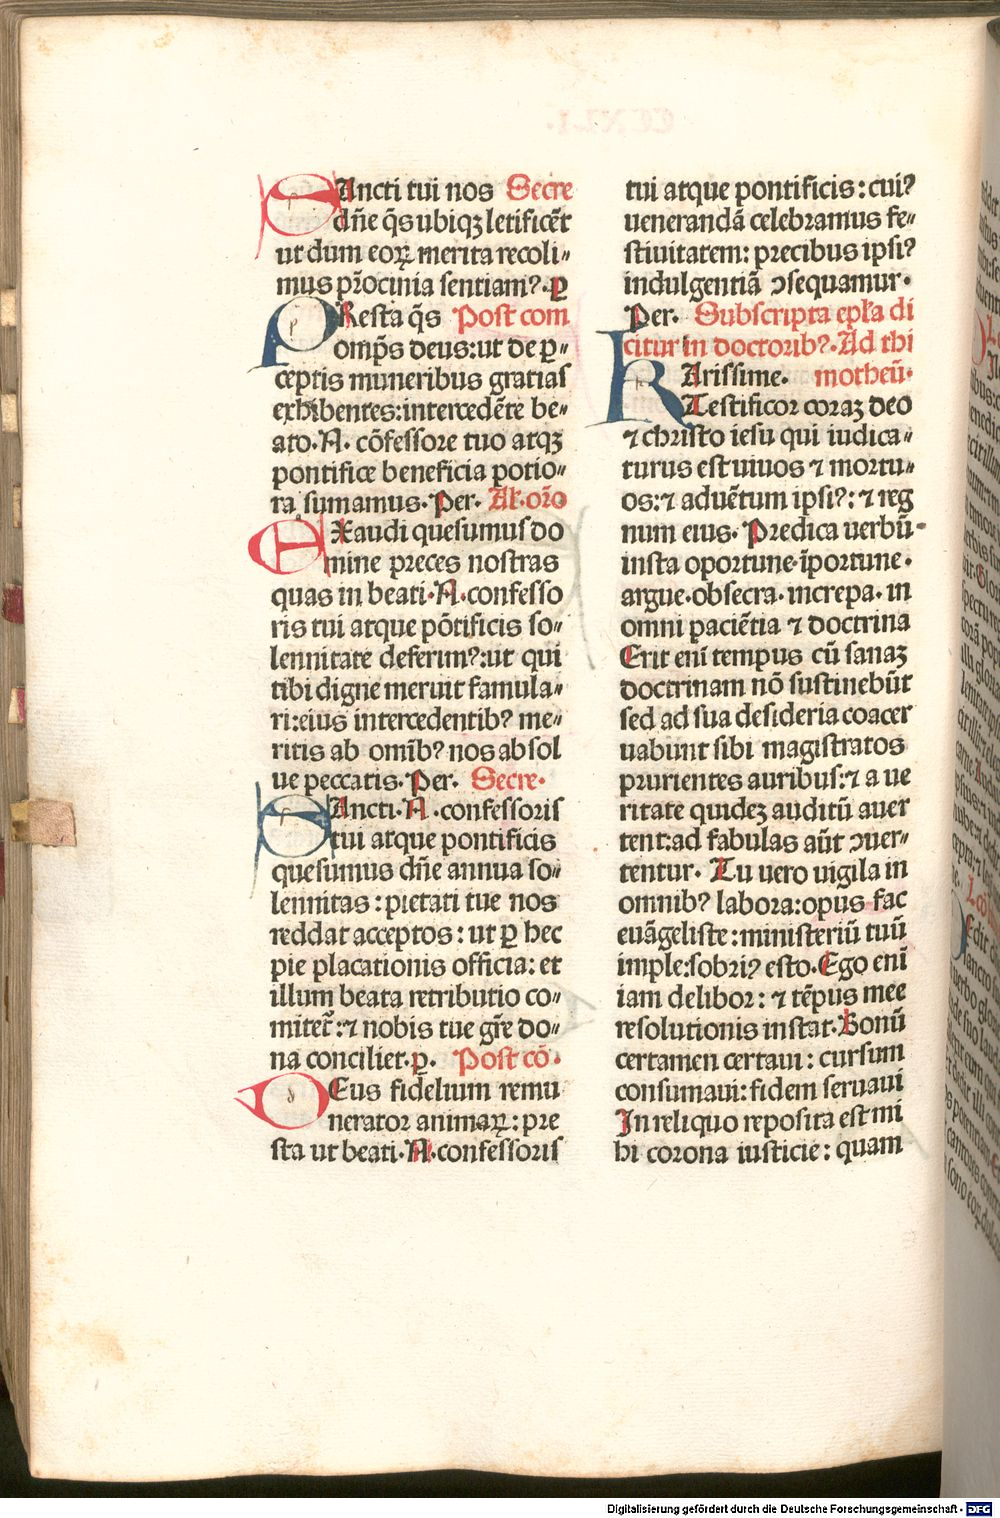 SAncti tui nos Secre
dn̄e q̄s ubiqꝫ letificēt
ut dum eoꝝ merita recoli⸗
mus pr̄ocinia sentiamꝰ. ꝑ
PResta q̄s Post com
omp̄s deus: ut de ꝑ⸗
ceptis muneribus gratias
exhibentes: intercedēte be⸗
ato. N. cōfessore tuo atqꝫ
pontifice beneficia potio⸗
ra sumamus. Per. Al. or̄o
EXaudi quesumus do
mine preces nostras
quas in beati. N. confesso
ris tui atque pōtificis so⸗
lennitate deferimꝰ: ut qui
tibi digne meruit famula⸗
ri: eius intercedentibꝰ me⸗
ritis ab omībꝰ nos absol
ue peccatis. Per. Secre.
SAncti. N. confessoris
tui atque pontificis
quesumus dn̄e annua so⸗
lennitas: pietati tue nos
reddat acceptos: ut ꝑ hec
pie placationis officia: et
illum beata retributio co⸗
mitet᷑: ⁊ nobis tue gr̄e do⸗
na conciliet. ꝑ. Post cō.
DEus fidelium remu
nerator animaꝝ: pre
sta ut beati. N. confessoris
tui atque pontificis: cuiꝰ
uenerandā celebramus fe⸗
stiuitatem: precibus ipsiꝰ
indulgentiā ↄsequamur.
Per. Subscripta ep̄la di
citur in doctoribꝰ. Ad thi
KArissime. motheū.
Testificor coraꝫ deo
⁊ christo iesu qui iudica⸗
turus est uiuos ⁊ mortu⸗
os: ⁊ aduētum ipsiꝰ: ⁊ reg
num eius. Predica uerbū⸗
insta oportune. īportune.
argue. obsecra. increpa. in
omni paciētia ⁊ doctrina
Erit enī tempus cū sanaꝫ
doctrinam nō sustinebūt
sed ad sua desideria coacer
uabunt sibi magistratos
prurientes auribus: ⁊ a ue
ritate quideꝫ auditū auer
tent: ad fabulas aūt ↄuer⸗
tentur. Tu uero uigila in
omnibꝰ labora: opus fac
euāgeliste: ministeriū tuū
imple: sobriꝰ esto. Ego enī
iam delibor: ⁊ tēpus mee
resolutionis instat. Bonū
certamen certaui: cursum
consumaui: fidem seruaui
In reliquo reposita est mi
hi corona iusticie: quam
Digitalisierung gefördert durch die Deutsche Forschungsgemeinschaft - DFG